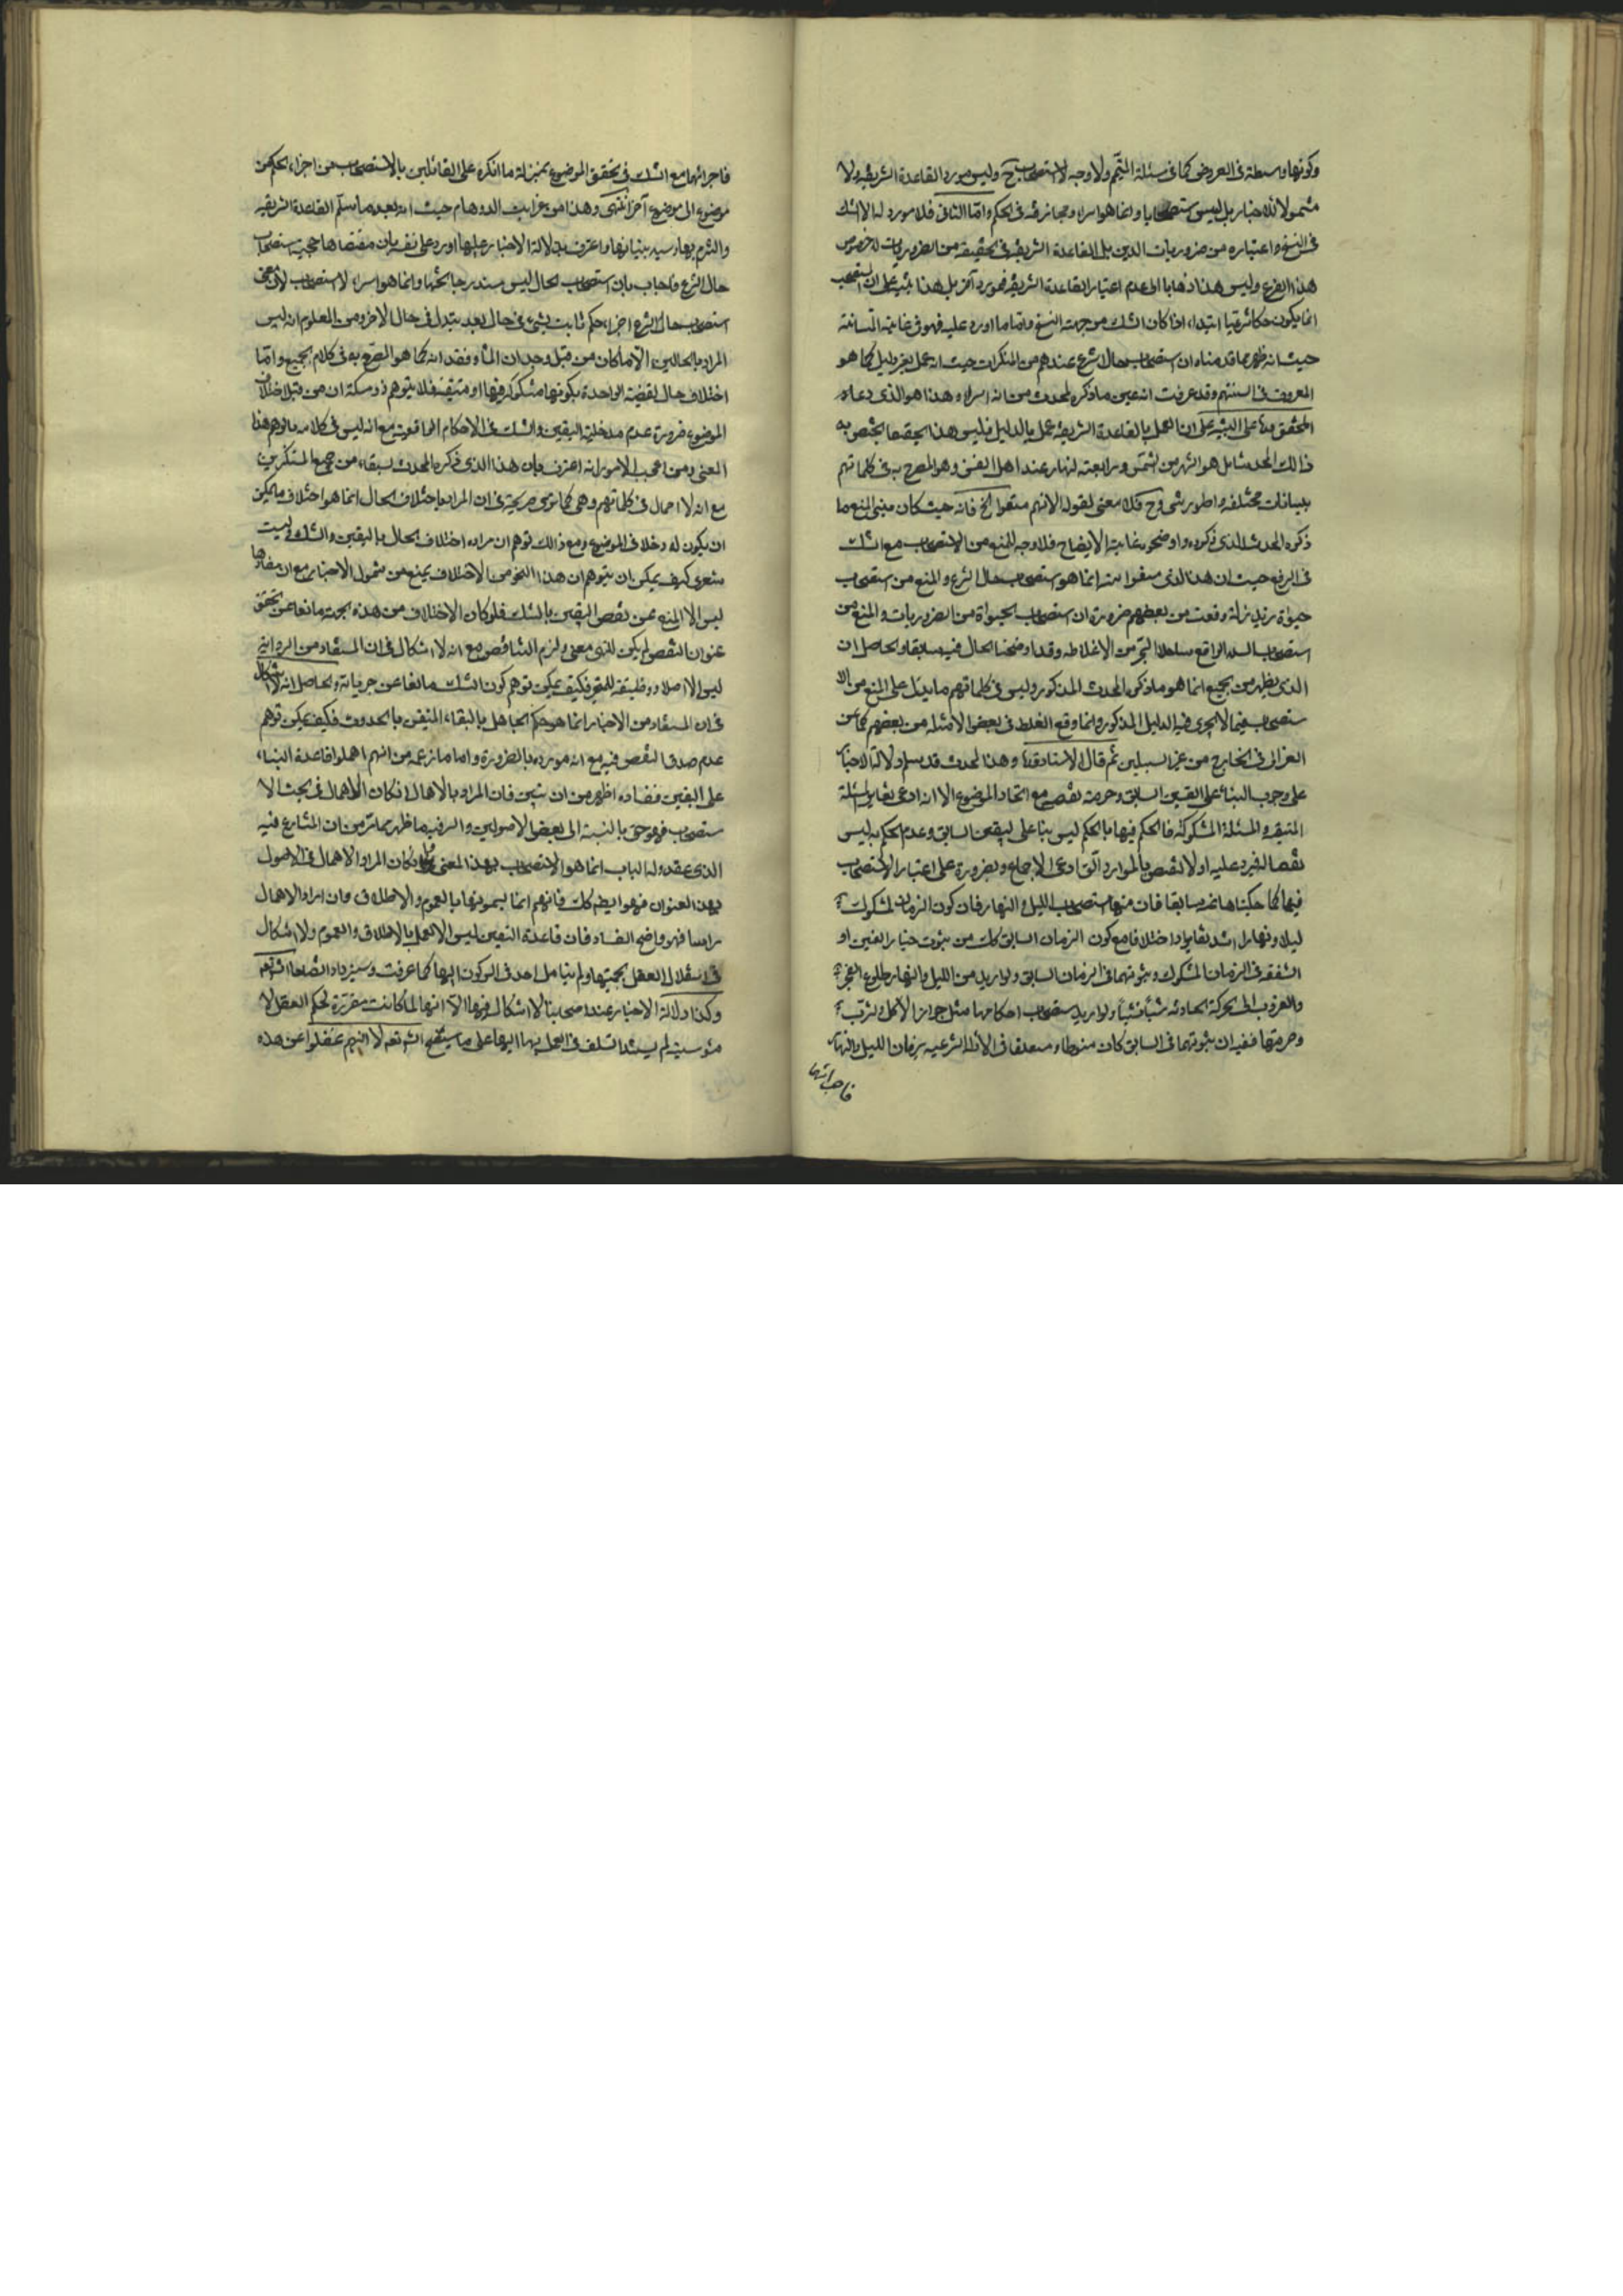 وكونها واسطة فى العروض كما فى مسئلة التيمم ولا وجه للاستصحاب ح وليس مورد القاعدة الشريفة ولا
مشمولا للاخبار بل ليس ستصحابا وانما هو اسراء ومجازفة فى الحكم وامّا الثانى فلا مورد له الا الشك
فى النسخ واعتباره من ضروريات الدين بل القاعدة الشريفة فى الحقيقة من الضروريات لخصوص
هذا الفرع وليس هذا ذهابا الى عدم اعتبار القاعدة الشريفة فى مورد آخر بل هذا على ان
انما يكون حكما شرعيا ابتداء اذا كان الشك من جهة النسخ واما ما اورد عليه فهو فى غاية المتانة
حيث انه ظهر مما قدمناه ان استصحاب حال الشرع عندهم من المنكرات حيث انه عمل بغير دليل كما هو
المعروف فى السنتهم وقد عرفت انه عين ما ذكره المحدث من انه اسراء وهذا هو الذى دعاه
المحقق على ان العمل بالقاعدة الشريفة عمل بالدليل فليس هذا يختص به
ذالك المحدث بل هو اشهر من الشمس ورابعة النهار عند اهل الفن وهو المصرح به فى كلماتهم
ببيانات مختلفة واطوار شتى وح فلا معنى لقوله الا انهم منعوا الخ فانه حيث كان مبنى المنع ما
ذكره المحدث الذى ذكره واوضحوه غاية الايضاح فلا وجه للمنع من الاستصحاب مع الشك
فى الرفع حيث ان هذا الذى منعوا منه انما هو استصحاب حال الشرع والمنع من استصحاب
حيوة زيد زلة وقعت من بعضهم ضرورة ان استصحاب الحيواة من الضروريات والمنع من
استصحاب البلد الواقع ساحل البحر من الاغلاط وقد اوضحنا الحال فيه سابقا والحاصل ان
الذى يظهر من الجميع انما هو ما ذكره المحدث المذكور وليس فى كلماتهم ما يدل على المنع من الا
ستصحاب فيما لا يجرى فيه الدليل المذكور وانما وقع الغلط فى بعض الامثلة من بعضهم كما عن
الغزالى فى الخارج من غير السبيلين ثم قال الاستاد وهذا المحدث قد سلم دلالة الاخبار
على وجوب البناء على اليقين السابق وحرمة نقضه مع اتحاد الموضوع الا انه ادعى تغاير المسئلة
المتيقنة والمسئلة المشكوكة فالحكم فيها بالحكم ليس بناء على اليقين السابق وعدم الحكم به ليس
نقضا له فيرد عليه اولا النقض بالموارد التى ادعى الاجماع والضرورة على اعتبار الاستصحاب
فيها كما حكيناها عنه سابقا فان منها استصحاب الليل والنهار فان كون الزمان المشكوك
ليلا ونهارا اشد تغايرا واختلافا مع كون الزمان السابق كك من ثبوت خيار الغبن او
الشفعة فى الزمان المشكوك وثبوتهما فى الزمان السابق ولو اريد من الليل والنهار طلوع الفجر
والغروب الحركة الحادثه شيأ فشيأ ولو اريد استصحاب احكامها مثل جواز الاكل والشرب
وحرمتهما ففيه ان ثبوتهما فى السابق كان منوطا ومتعلقا فى الأدلة الشرعيه بزمان الليل والنهار
فاجرائها
فاجرائها مع الشك فى تحقق الموضوع بمنزلة ما انكره على القائلين بالاستصحاب من اجراء الحكم من
موضوع الى موضوع آخر انتهى وهذا من غرايب الاوهام حيث انه بعد ما سلّم القاعدة الشريفة
والتزم بها وسيد بنيانها واعترف بدلالة الاخبار عليها اورد على نفسه بان مقتضاها حجية استصحاب
حال الشرع واجاب بان استصحاب الحال ليس مندرجا تحتها وانما هو اسراء لا استصحاب لأن معنى
استصحاب حال الشرع اجراء حكم ثابت لشىء فى حال بعد تبدله فى حال الاخر ومن المعلوم انه ليس
المراد بالحالين الا ما كان من قبيل وجدان الماء وفقدانه كما هو المصرح به فى كلام الجميع وامّا
اختلاف حال القضية الواحدة بكونها مشكوكة فيها او متيقنة فلا يتوهم ذو مسكة ان من قبيل اختلاف
الموضوع ضرورة عدم مدخلية اليقين والشك فى الاحكام الواقعية مع انه ليس فى كلامه ما يوهم هذا
المعنى ومن اعجب الامور انه اعترف بان هذا الذى ذكره المحدث سبقه من جميع المنكرين
مع انه لا اجمال فى كلماتهم وهى كما ترى صريحة فى ان المراد باختلاف الحال انما هو اختلاف ما يمكن
ان يكون له دخلا فى الموضوع ومع ذالك توهم ان مراده اختلاف الحال باليقين والشك فليت
شعرى كيف يمكن ان يتوهم ان هذا النحو من الاختلاف يمنع من شمول الاخبار مع ان مفادها
ليس الا المنع عن نقض اليقين بالشك فلو كان الاختلاف من هذه الجهة مانعا عن تحقق
عنوان النقض لم يكن للنهى معنى ولزم التناقض مع انه لا اشكال فى ان المستفاد من الرواية
ليس الا اصلا ووظيفة للمتحير فكيف يمكن توهم كون الشك مانعا عن جريانه والحاصل انه لا اشكال
فى ان المستفاد من الاخبار انما هو حكم الجاهل بالبقاء المتيقن بالحدوث فكيف يمكن توهم
عدم صدق النقض فيه مع انه مورده بالضرورة واما ما زعمه من انهم اهملوا قاعدة البناء
على اليقين ففساده اظهر من ان يبين فان المراد بالاهمال ان كان الاهمال فى بحث الا
ستصحاب فهو حق بالنسبة الى بعض الاصوليين والسر فيه ما ظهر مما مر من ان المتنازع فيه
الذى عقدوا له الباب انما هو الاستصحاب بهذا المعنى كان المراد الاهمال فى الاصول
بهذا العنوان فهو ايضا كك فانهم انما يسمونها بالعموم والاطلاق وان اراد الاهمال
راسا فهو واضح الفساد فان قاعدة اليقين ليس الا العمل بالاطلاق والعموم ولا اشكال
فى استقلال العقل بحجيتها ولم يتأمل احد فى الركون اليها كما عرفت وسيزداد اتضاحا انش تعم
وكذا دلالة الاخبار عند اصحابنا لا اشكال فيها الا انها لما كانت مقررة لحكم العقل لا
مؤسسة لم يستند السلف فى العمل بها اليها على ما سيتضح انش تعم لا انهم غفلوا عن هذه